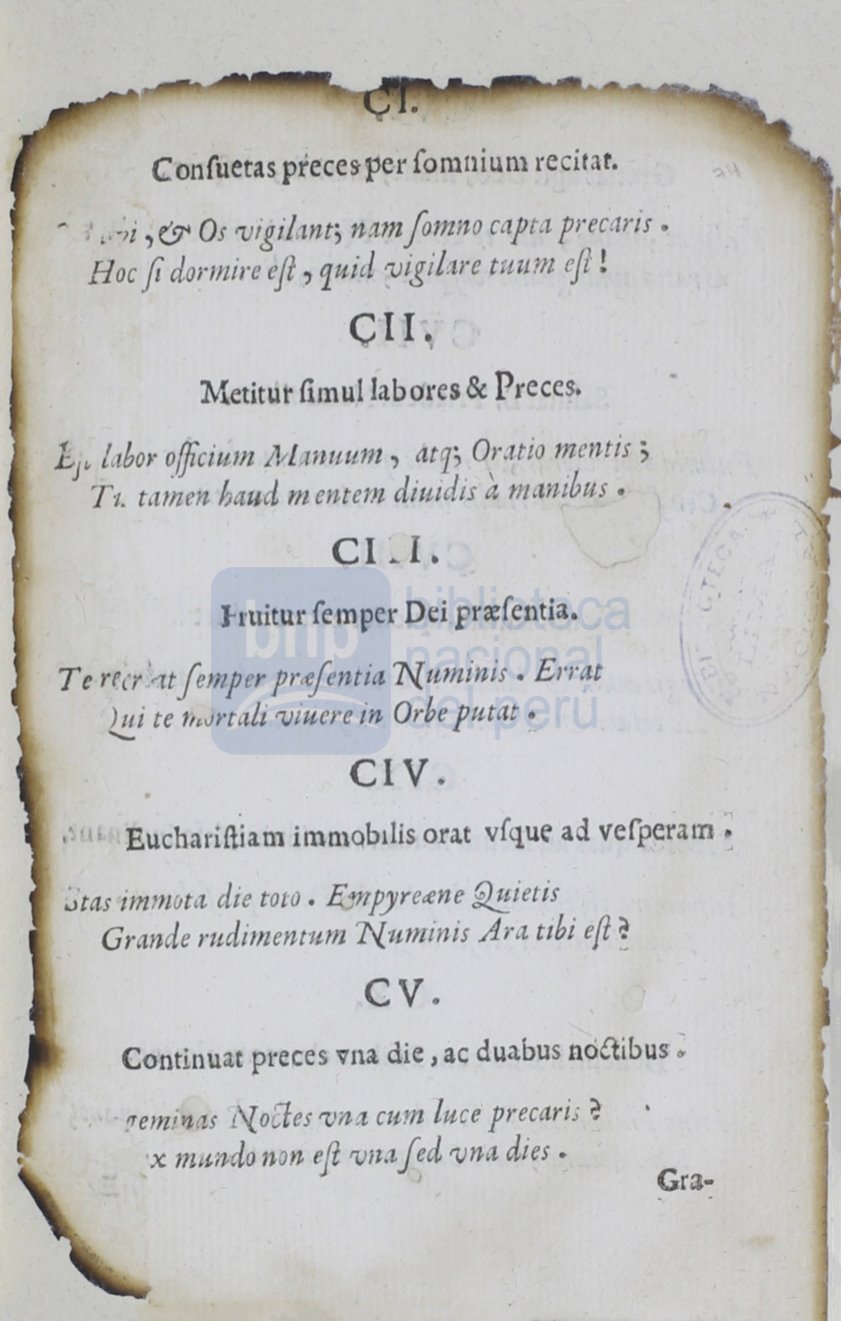 CI.
Conſuetas preces per ſomnium recitat.
, & Os vigilant; nam ſomno capta precaris.
Hoc ſi dormire eſt, quid vigilare tuum eſt!
CII.
Metitur ſimul labores & Preces.
labor officium Manuum, atq; Oratio mentis;
tamen haud mentem diuidis à manibus.
CIII.
Fruitur ſemper Dei præſentia.
Te recreat ſemper præſentia Numinis. Errat
Qui te mortali viuere in Orbe putat.
CIV.
Euchariſtiam immobilis orat vſque ad veſperam.
Stas immota die toto. Empyreæne Quietis
Grande rudimentum Numinis Ara tibi eſt?
CV.
Continuat preces vna die, ac duabus noctibus.
geminas Noctes vna cum luce precaris?
mundo non eſt vna ſed vna dies.
Gra-
bnp biblioteca
nacional
del perú